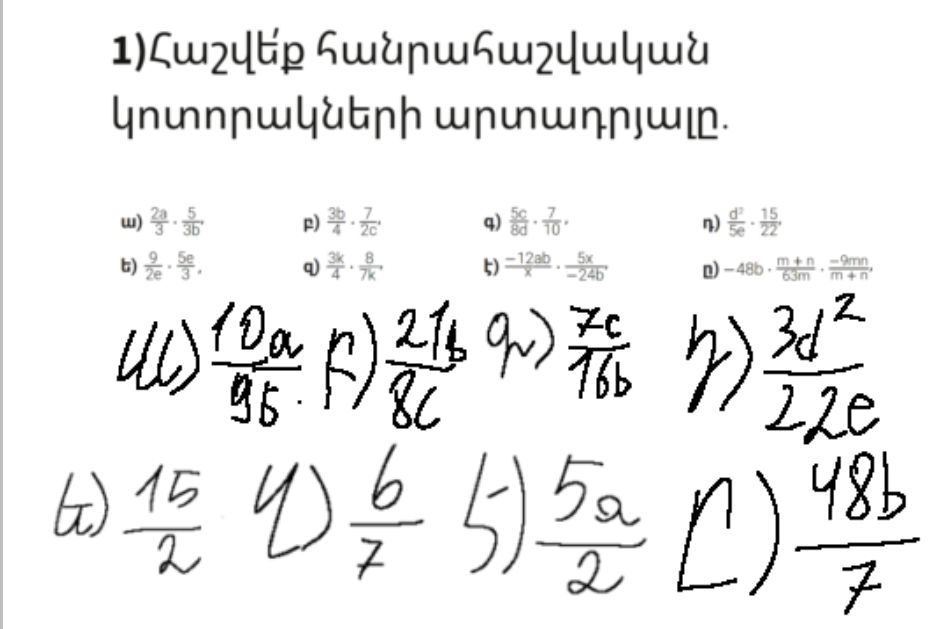 1)Հաշվե՛ք հանրահաշվական
կոտորակների արտադրյալը.
ա) 2a/3 · 5/3b, բ) 3b/4 · 7/2c, գ) 5c/8d · 7/10, դ) d²/5e · 15/22,
ե) 9/2e · 5e/3, զ) 3k/4 · 8/7k, է) −12ab/x · 5x/−24b, ը) −48b · m + n/63m · −9mn/m + n,
ա) 10a/9b. բ) 21b/8c գ) 7c/16b դ) 3d²/22e
ե) 15/2 զ) 6/7 է) 5a/2 ը) 48b/7